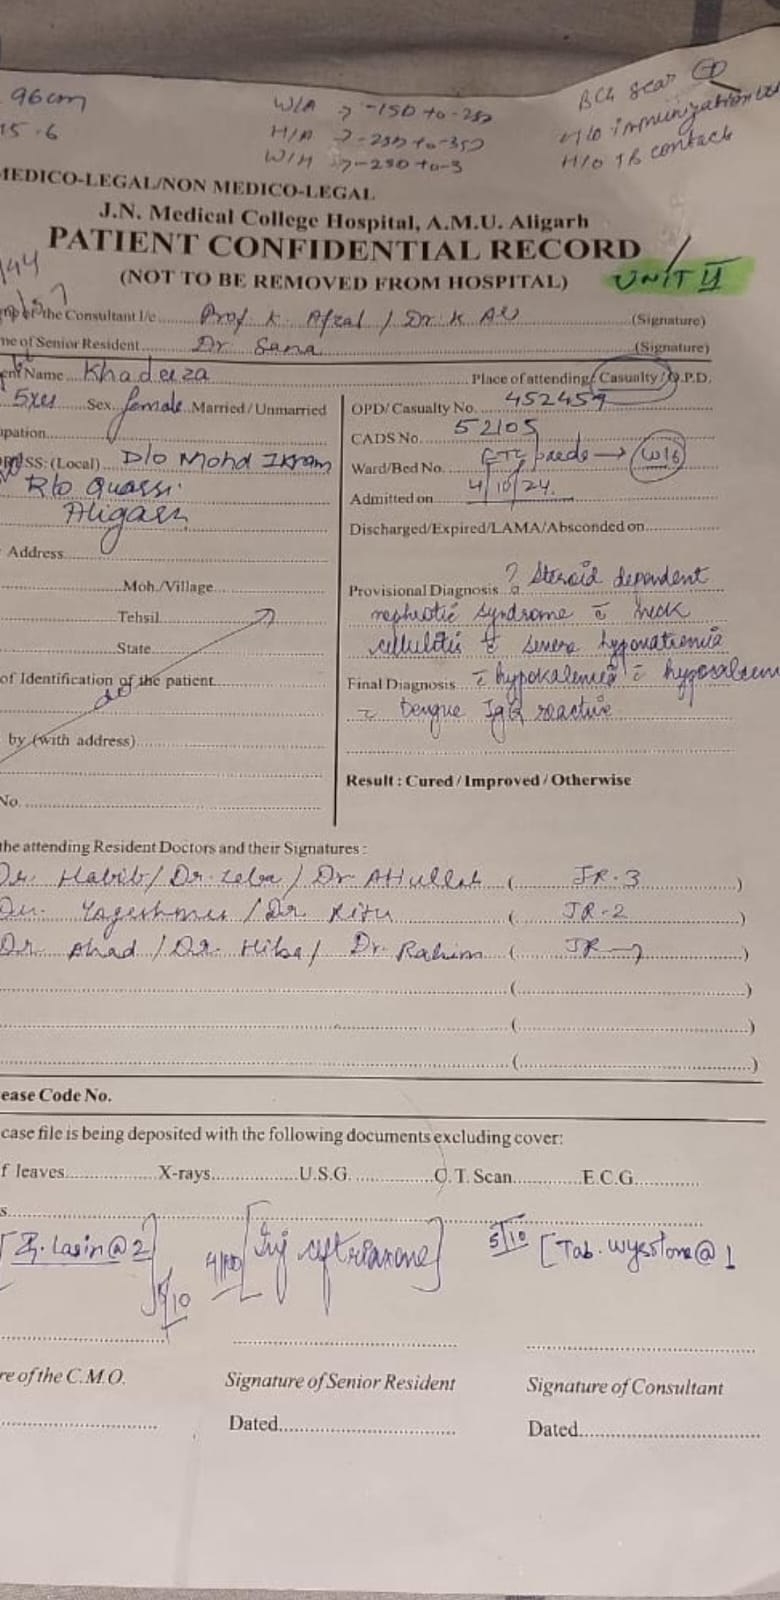 96cm
15.6
W/A → -1SD to -2SD
H/A → -2SD to -3SD
W/H → -2SD to -3
BCG scar +
H/o immunization
H/o TB contact
MEDICO-LEGAL/NON MEDICO-LEGAL
J.N. Medical College Hospital, A.M.U. Aligarh
PATIENT CONFIDENTIAL RECORD
(NOT TO BE REMOVED FROM HOSPITAL)
UNIT II
the Consultant I/c Prof K. Afzal / Dr K Ali (Signature)
me of Senior Resident Dr Sana (Signature)
ent Name Khadeeza Place of attending: Casualty/O.P.D.
5yrs Sex female Married/Unmarried
OPD/Casualty No. 452459
upation
CADS No. 52105
SS: (Local) D/o Mohd Ikram
Ward/Bed No. ETC paeds → W16
R/o Quarsi
Aligarh
Admitted on 4/10/24
Discharged/Expired/LAMA/Absconded on
Address
Moh./Village
Tehsil
State
of Identification of the patient
by (with address)
No.
Provisional Diagnosis ? Steroid dependent
nephrotic syndrome c̄ neck
cellulitis c̄ severe hyponatremia
Final Diagnosis c̄ hypokalemia c̄ hypocalcem
c̄ Dengue IgG reactive
Result : Cured / Improved / Otherwise
the attending Resident Doctors and their Signatures :
Dr. Habib / Dr. Zeba / Dr Atiullah ( JR-3 )
Dr. Yogeshmer / Dr Ritu ( JR-2 )
Dr Ahad / Dr. Hiba / Dr. Rahim ( JR-1 )
( )
( )
( )
ease Code No.
case file is being deposited with the following documents excluding cover:
f leaves X-rays U.S.G. C.T. Scan E.C.G.
s
[Inj. Lasix @ 2] 5/10
4/10 [Inj ceftriaxone]
5/10 [Tab. Wysolone @ 1
re of the C.M.O. Signature of Senior Resident Signature of Consultant
Dated Dated